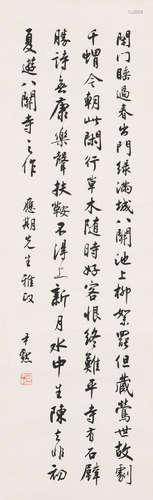 閉門睡過春出門綠滿城八關池上柳絮罷但藏鶯世故劇
千蝟今朝此閑行草木隨時好客恨終難平寺有石壁
勝詩無康樂聲扶鞍不得上新月水中生陳去非初
夏遊八關寺之作 應期先生雅政
尹默